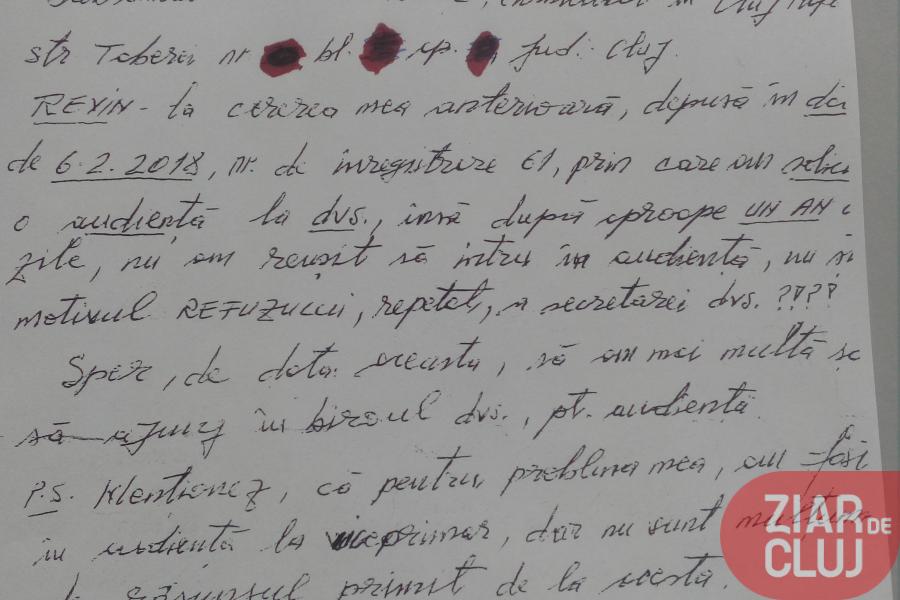 în Cluj
str Taberei nr bl. ap. jud. Cluj.
REVIN - la cererea mea anterioară, depusă în da
de 6.2.2018, nr. de înregistrare 61, prin care am solici
o audiență la dvs., însă după aproape UN AN
zile, nu am reușit să intru în audiență, nu
motivul REFUZULUI, repetat, a secretarei dvs. ????
Sper, de data aceasta, să am mai multă
să ajung în biroul dvs., pt. audiență
P.S. Menționez, că pentru problema mea, am fos
în audiență la viceprimar, dar nu sunt mulțum
răspunsul primit de la acesta.
ZIAR DE CLUJ